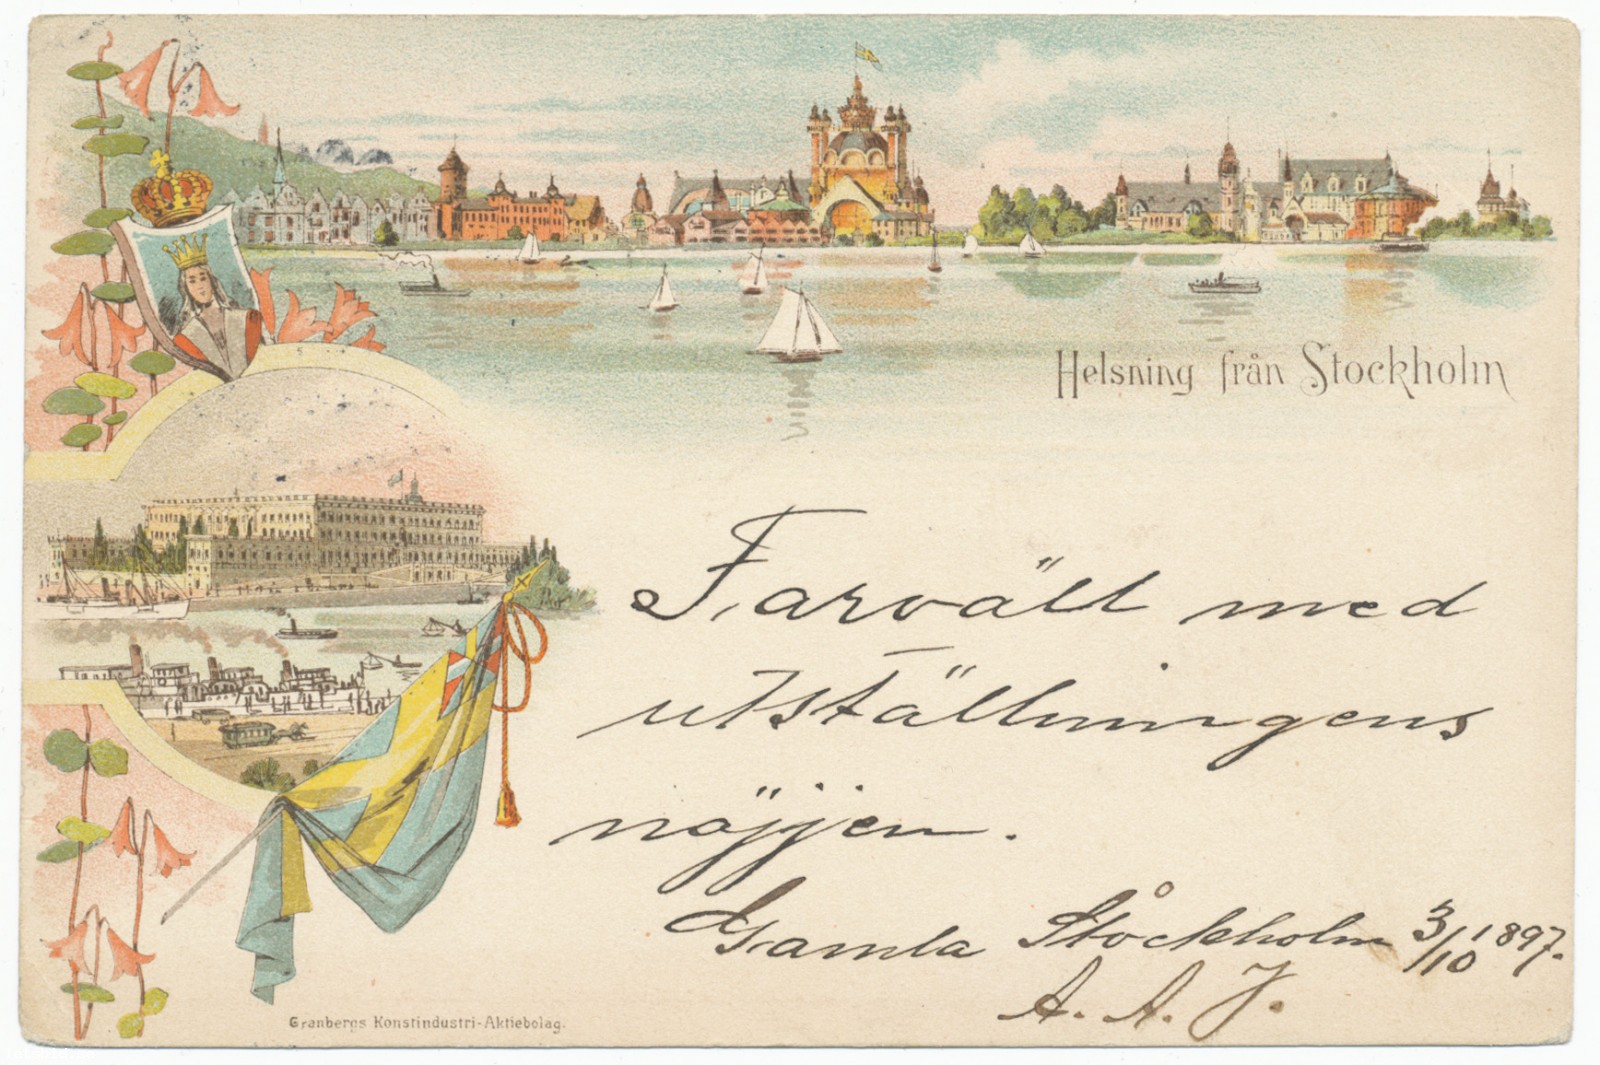 Helsning från Stockholm
Farväll med
utställningens
nöjjen.
Gamla Stockholm 3/10 1897.
A. A. J.
Granbergs Konstindustri-Aktiebolag.